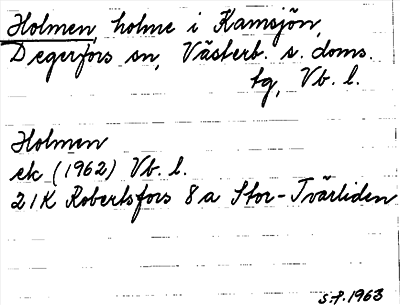 Holmen, holme i Kamsjön,
Degerfors sn, Västerb. s. doms.
tg, Vb. l.
Holmen
ek (1962) Vb. l.
21K Robertsfors 8a Stor-Tvärliden
S.P. 1963